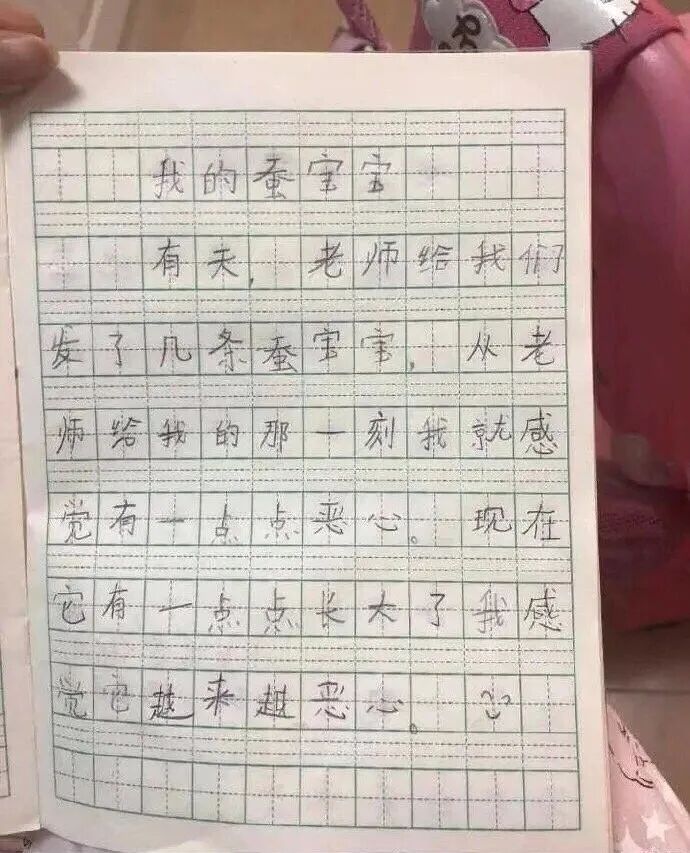 我的蚕宝宝
有天,老师给我们
发了几条蚕宝宝,从老
师给我的那一刻我就感
觉有一点点恶心。现在
它有一点点长大了我感
觉它越来越恶心。